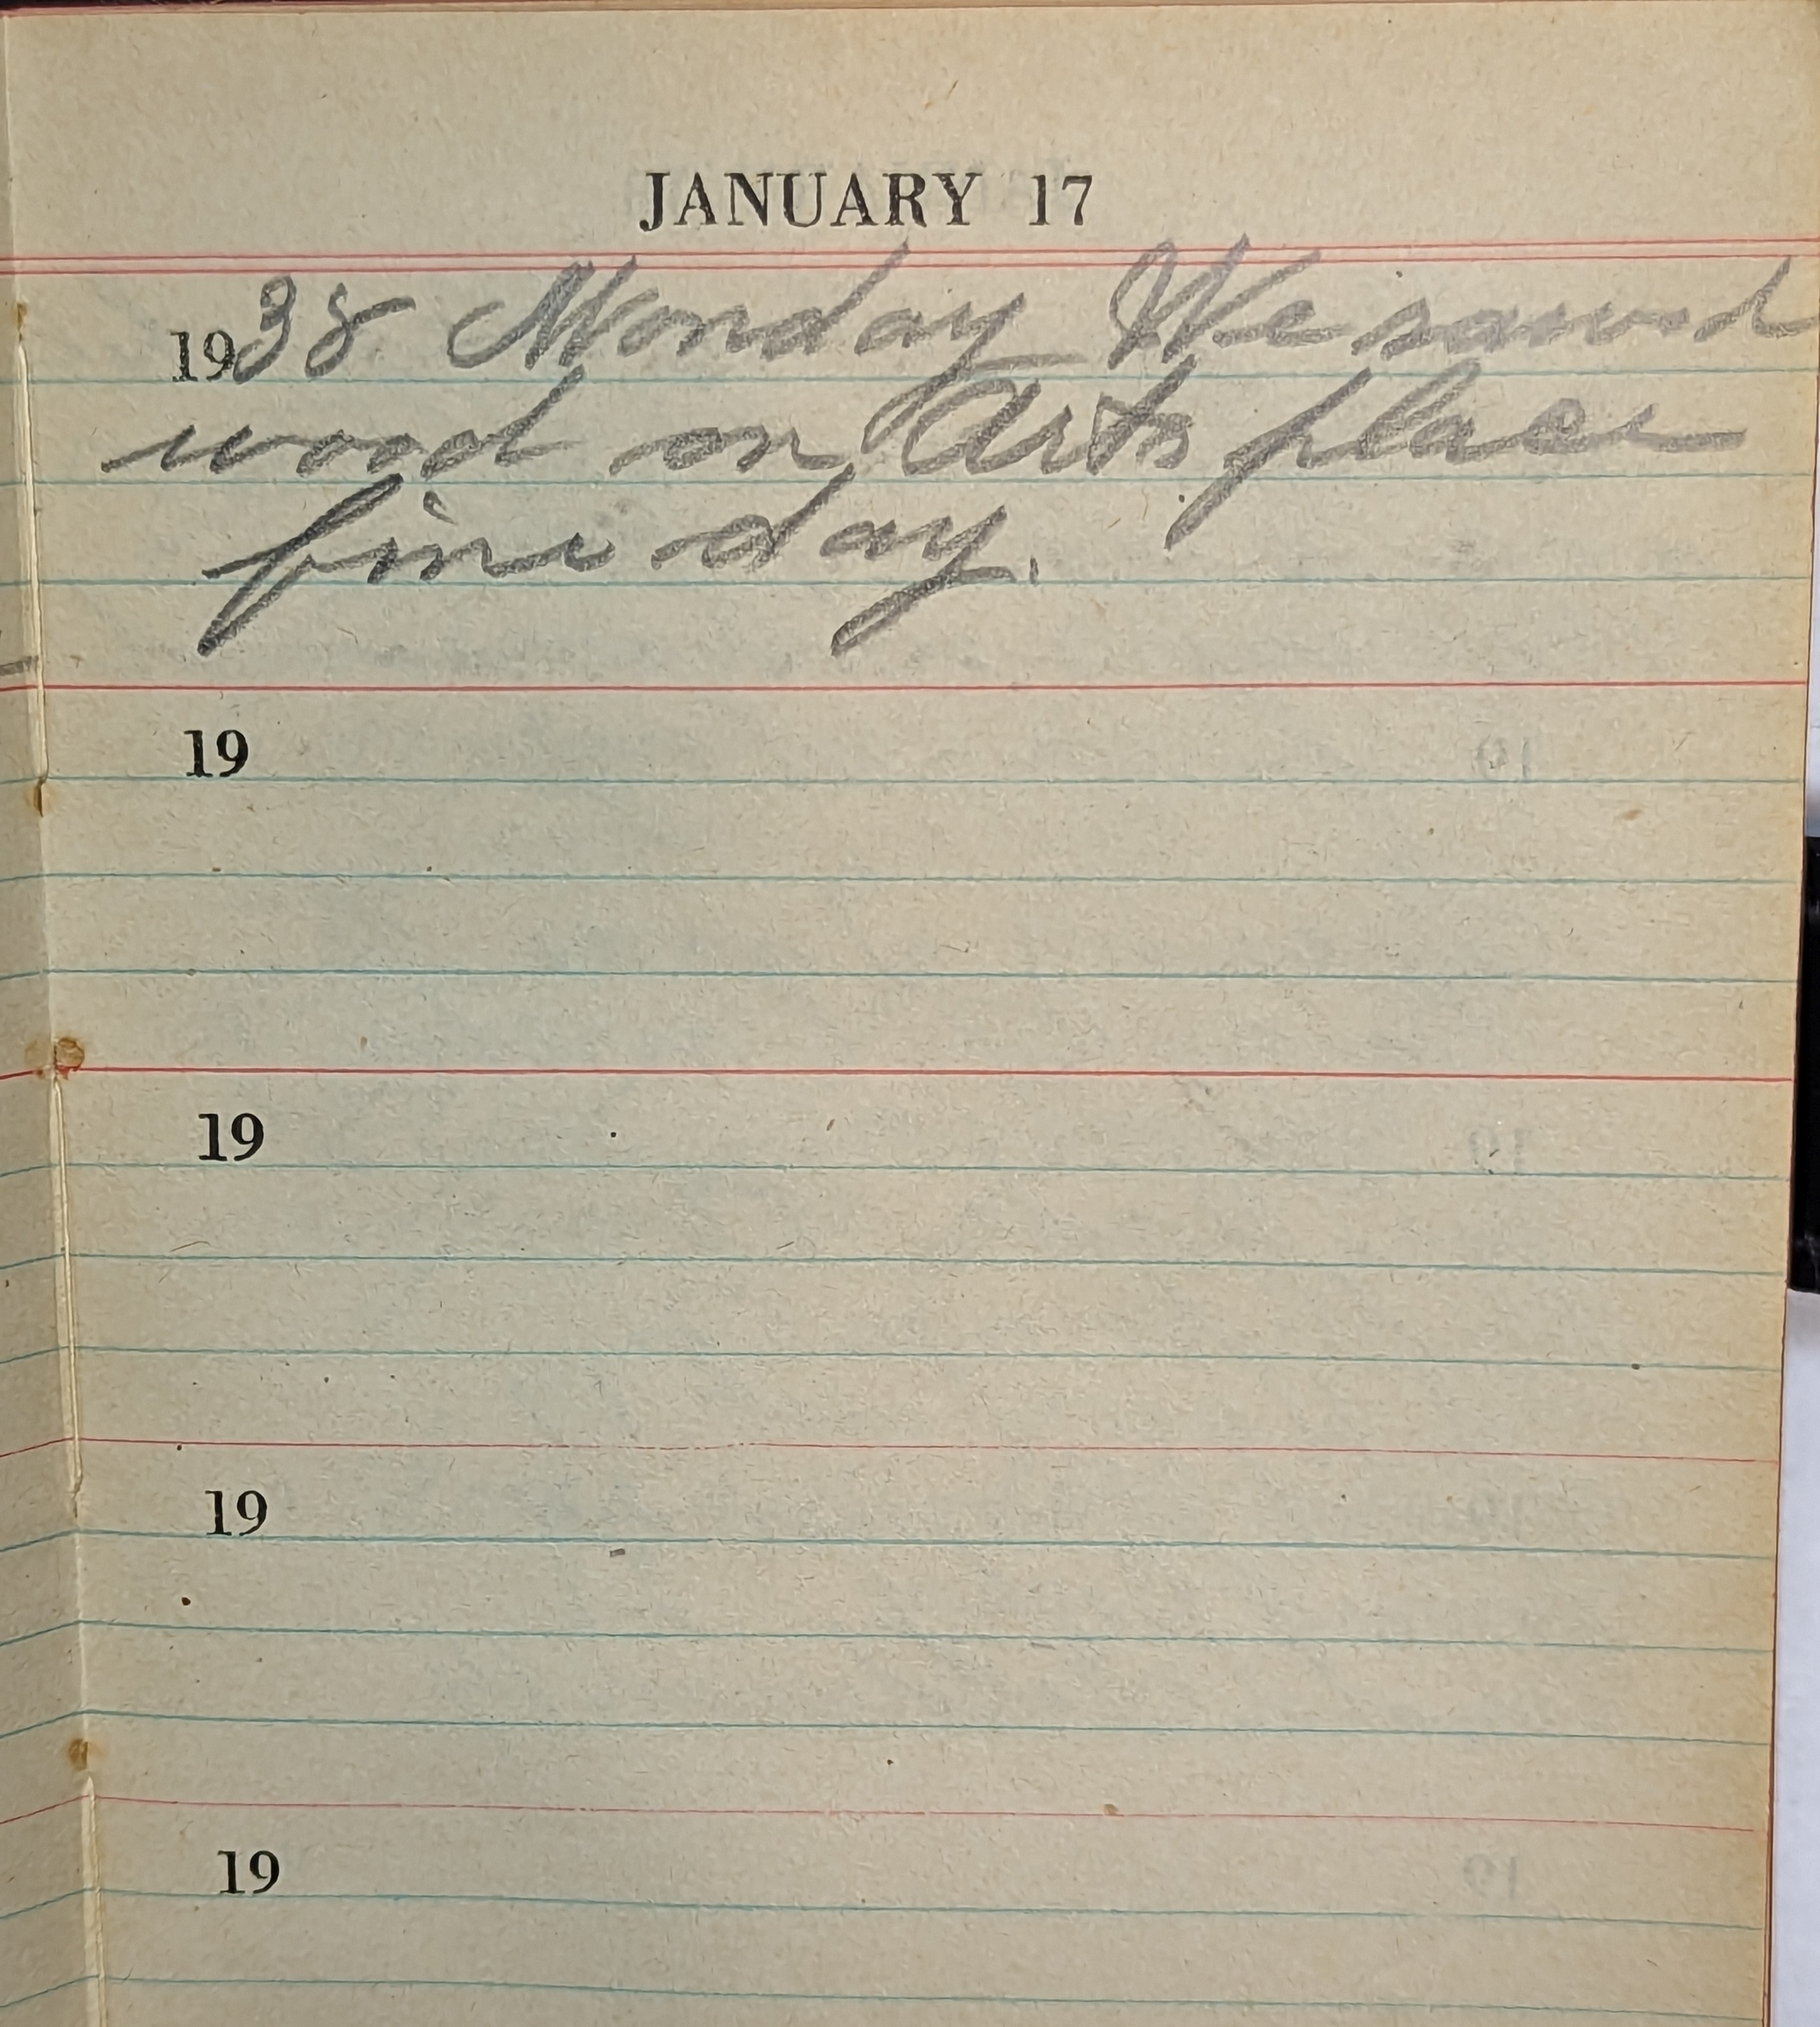 JANUARY 17
1938 Monday We sawed
wood on Arts place
fine day.
19
19
19
19